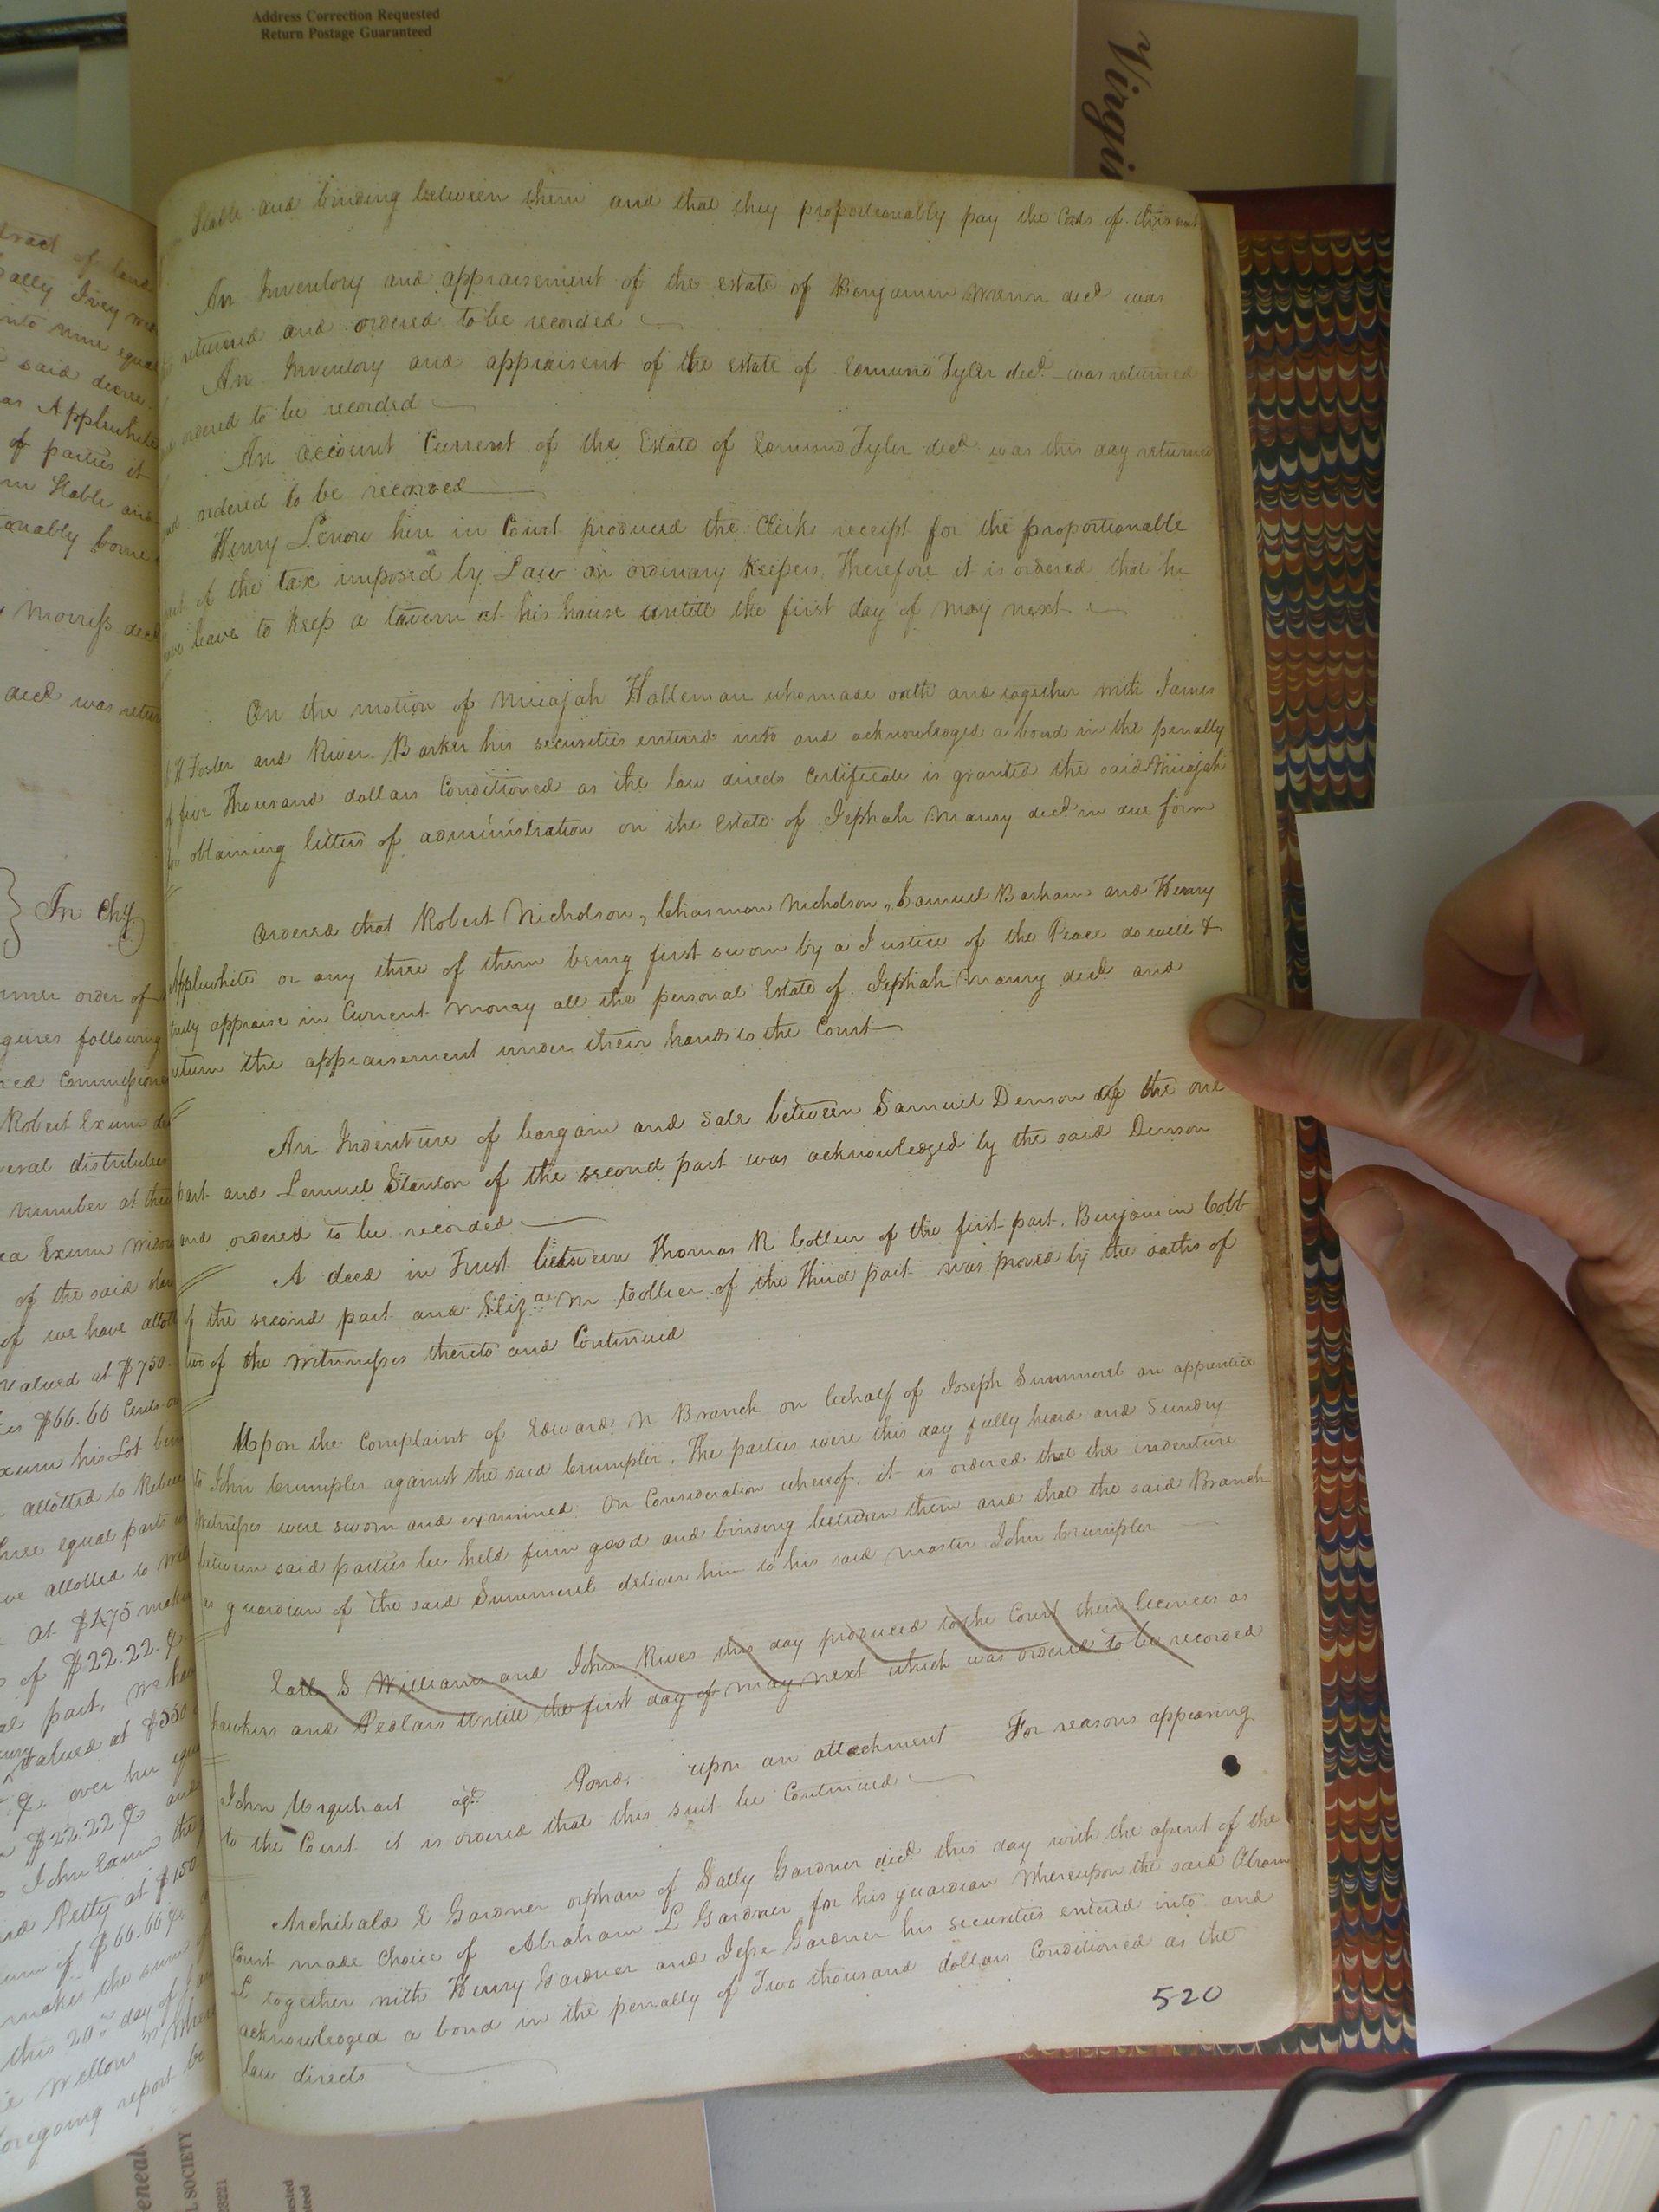 Address Correction Requested
Return Postage Guaranteed
Virgi
Stable and binding between them and that they proportionably pay the Costs of this suit
An Inventory and appraisement of the estate of Benjamin Wrenn decd was
returned and ordered to be recorded
An Inventory and appraisent of the estate of Edmund Tyler decd was returned
ordered to be recorded
An account Current of the Estate of Edmund Tyler decd was this day returned
and ordered to be recorded
Henry Lenow here in Court produced the Clerks receipt for the proportionable
part of the tax imposed by Law on ordinary Keepers, Therefore it is ordered that he
have leave to keep a tavern at his house untill the first day of may next
On the motion of Micajah Holleman who made oath and together with James
Foster and River Barker his securities entered into and acknowledged a bond in the penalty
of five Thousand dollars Conditioned as the law directs Certificate is granted the said Micajah
for obtaining letters of administration on the Estate of Jephah Maury decd in due form
Ordered that Robert Nicholson, Chasmon Nicholson, Samuel Barham and Henry
Applewhite or any three of them being first sworn by a Justice of the Peace do well &
truly appraise in Current money all the personal Estate of Jephah Maury decd and
return the appraisement under their hands to the Court
An Indenture of bargain and sale between Samuel Denson of the one
part and Lemuel Stanton of the second part was acknowledged by the said Denson
and ordered to be recorded
A deed in Trust between Thomas R Collier of the first part, Benjamin Cobb
of the second part and Eliza M Collier of the Third part was proved by the oaths of
two of the Witnesses thereto and Continued
Upon the Complaint of Edward N Branch on behalf of Joseph Summerel an apprentice
to John Crumpler against the said Crumpler. The parties were this day fully heard and sundry
witnesses were sworn and examined. On Consideration whereof, it is ordered that the indenture
between said parties be held firm good and binding between them and that the said Branch
as guardian of the said Summerel deliver him to his said master John Crumpler
Earl S Williams and John Rives this day produced to the Court their licences as
hawkers and Pedlars Untill the first day of may next which was ordered to be recorded
John Urquhart agt Pond. upon an attachment For reasons appearing
to the Court it is ordered that this suit be Continued
Archibald E Gardner orphan of Sally Gardner decd this day with the assent of the
Court made Choice of Abraham L Gardner for his guardian Whereupon the said Abram
L together with Henry Gardner and Jesse Gardner his securities entered into and
acknowledged a bond in the penalty of Two thousand dollars Conditioned as the
law directs
520
tract of land
into nine equal
said decree
Applewhite
of parties it
Stable and
Morriss decd
decd was
In Chy
order of
following
Robert Exum
number at
Exum
of the said
of we have
Valued at $750.
$66.66 Cents
his Lot
allotted to
equal parts
allotted to
At $475
of $22.22
part, We
Valued at $550
over her
$22.22 and
John Exum the
Petty at $150
of $66.66
makes the sum
this 20th day of
foregoing report be
L SOCIETY
23221